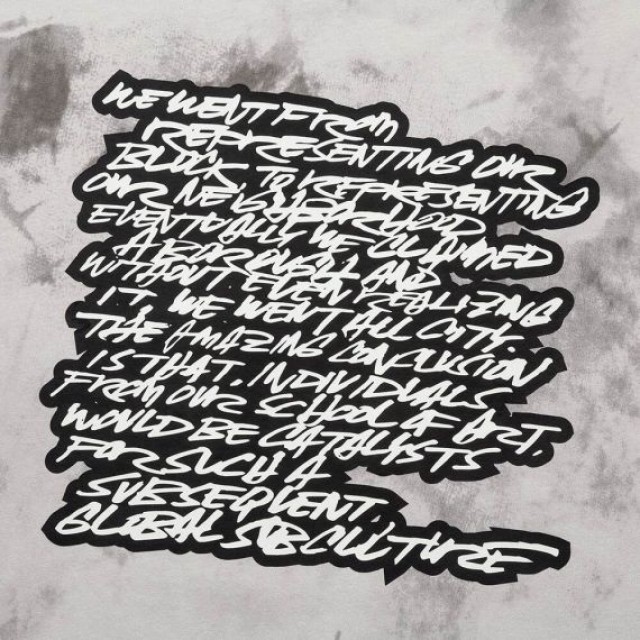 WE WENT FROM
REPRESENTING OUR
BLOCK TO REPRESENTING
OUR NEIGHBORHOOD
EVENTUALLY WE CLAIMED
A BOROUGH. AND
WITHOUT EVEN REALIZING
IT WE WENT ALL CITY.
THE AMAZING CONCLUSION
IS THAT. INDIVIDUALS
FROM OUR SCHOOL OF ART.
WOULD BE CATALYSTS
FOR SUCH A
SUBSEQUENT.
GLOBAL SUBCULTURE